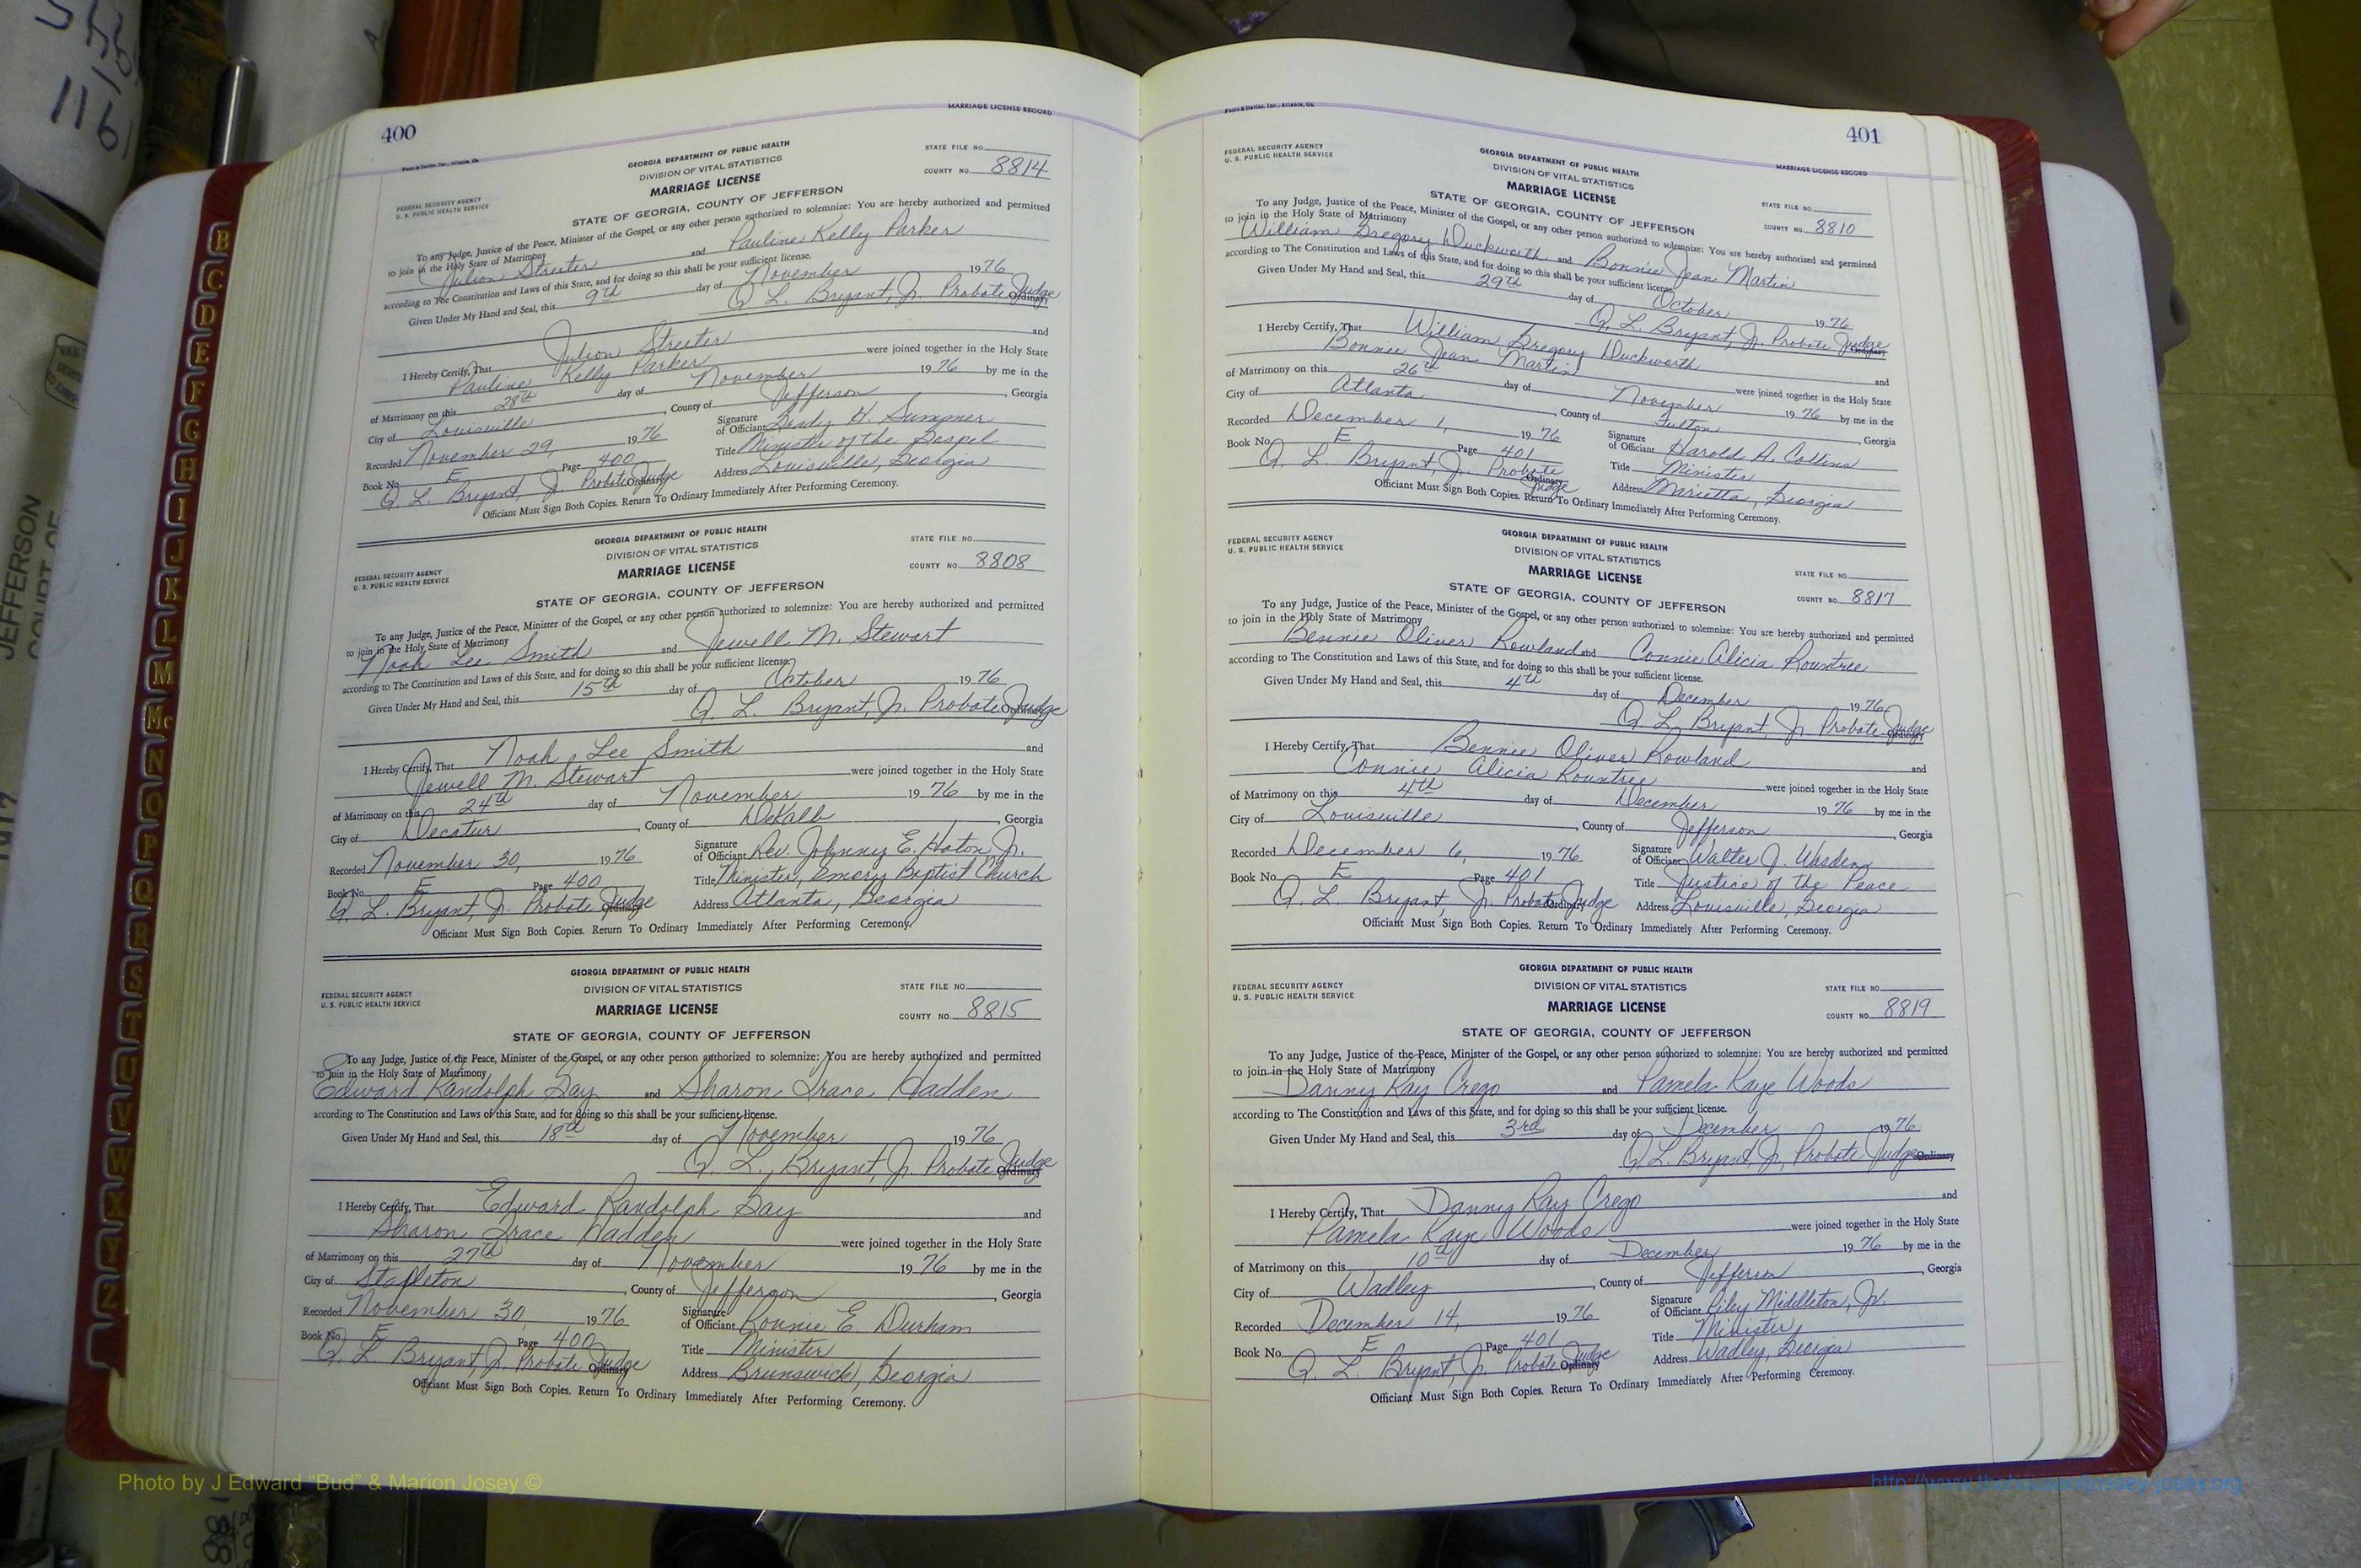 400
MARRIAGE LICENSE RECORD
Foote & Davies, Inc., Atlanta, Ga.
FEDERAL SECURITY AGENCY
U. S. PUBLIC HEALTH SERVICE
GEORGIA DEPARTMENT OF PUBLIC HEALTH
DIVISION OF VITAL STATISTICS
MARRIAGE LICENSE
STATE OF GEORGIA, COUNTY OF JEFFERSON
STATE FILE NO.
COUNTY NO. 8814
To any Judge, Justice of the Peace, Minister of the Gospel, or any other person authorized to solemnize: You are hereby authorized and permitted
to join in the Holy State of Matrimony
Julion Streeter and Pauline Kelly Parker
according to The Constitution and Laws of this State, and for doing so this shall be your sufficient license.
Given Under My Hand and Seal, this 9th day of November 1976
Q. L. Bryant, Jr. Probate Judge Ordinary
I Hereby Certify, That Julion Streeter and
Pauline Kelly Parker were joined together in the Holy State
of Matrimony on this 28th day of November 1976 by me in the
City of Louisville, County of Jefferson, Georgia
Recorded November 29, 1976 Signature of Officiant Brady H. Summer
Book No. E Page 400 Title Minister of the Gospel
Q. L. Bryant, Jr. Probate Judge Ordinary Address Louisville, Georgia
Officiant Must Sign Both Copies. Return To Ordinary Immediately After Performing Ceremony.
FEDERAL SECURITY AGENCY
U. S. PUBLIC HEALTH SERVICE
GEORGIA DEPARTMENT OF PUBLIC HEALTH
DIVISION OF VITAL STATISTICS
MARRIAGE LICENSE
STATE OF GEORGIA, COUNTY OF JEFFERSON
STATE FILE NO.
COUNTY NO. 8808
To any Judge, Justice of the Peace, Minister of the Gospel, or any other person authorized to solemnize: You are hereby authorized and permitted
to join in the Holy State of Matrimony
Noah Lee Smith and Jewell M. Stewart
according to The Constitution and Laws of this State, and for doing so this shall be your sufficient license.
Given Under My Hand and Seal, this 15th day of October 1976
Q. L. Bryant, Jr. Probate Judge Ordinary
I Hereby Certify, That Noah Lee Smith and
Jewell M. Stewart were joined together in the Holy State
of Matrimony on this 24th day of November 1976 by me in the
City of Decatur, County of DeKalb, Georgia
Recorded November 30, 1976 Signature of Officiant Rev. Johnny E. Haton Jr.
Book No. E Page 400 Title Minister, Emory Baptist Church
Q. L. Bryant, Jr. Probate Judge Ordinary Address Atlanta, Georgia
Officiant Must Sign Both Copies. Return To Ordinary Immediately After Performing Ceremony.
FEDERAL SECURITY AGENCY
U. S. PUBLIC HEALTH SERVICE
GEORGIA DEPARTMENT OF PUBLIC HEALTH
DIVISION OF VITAL STATISTICS
MARRIAGE LICENSE
STATE OF GEORGIA, COUNTY OF JEFFERSON
STATE FILE NO.
COUNTY NO. 8815
To any Judge, Justice of the Peace, Minister of the Gospel, or any other person authorized to solemnize: You are hereby authorized and permitted
to join in the Holy State of Matrimony
Edward Randolph Gay and Sharon Grace Hadden
according to The Constitution and Laws of this State, and for doing so this shall be your sufficient license.
Given Under My Hand and Seal, this 18th day of November 1976
Q. L. Bryant, Jr. Probate Judge Ordinary
I Hereby Certify, That Edward Randolph Gay and
Sharon Grace Hadden were joined together in the Holy State
of Matrimony on this 27th day of November 1976 by me in the
City of Stapleton, County of Jefferson, Georgia
Recorded November 30, 1976 Signature of Officiant Ronnie E. Durham
Book No. E Page 400 Title Minister
Q. L. Bryant, Jr. Probate Judge Ordinary Address Brunswick, Georgia
Officiant Must Sign Both Copies. Return To Ordinary Immediately After Performing Ceremony.
Foote & Davies, Inc., Atlanta, Ga.
401
MARRIAGE LICENSE RECORD
FEDERAL SECURITY AGENCY
U. S. PUBLIC HEALTH SERVICE
GEORGIA DEPARTMENT OF PUBLIC HEALTH
DIVISION OF VITAL STATISTICS
MARRIAGE LICENSE
STATE OF GEORGIA, COUNTY OF JEFFERSON
STATE FILE NO.
COUNTY NO. 8810
To any Judge, Justice of the Peace, Minister of the Gospel, or any other person authorized to solemnize: You are hereby authorized and permitted
to join in the Holy State of Matrimony
William Gregory Duckworth and Bonnie Jean Martin
according to The Constitution and Laws of this State, and for doing so this shall be your sufficient license.
Given Under My Hand and Seal, this 29th day of October 1976
Q. L. Bryant, Jr. Probate Judge Ordinary
I Hereby Certify, That William Gregory Duckworth and
Bonnie Jean Martin were joined together in the Holy State
of Matrimony on this 26th day of November 1976 by me in the
City of Atlanta, County of Fulton, Georgia
Recorded December 1, 1976 Signature of Officiant Harold A. Collins
Book No. E Page 401 Title Minister
Q. L. Bryant, Jr. Probate Ordinary Judge Address Marietta, Georgia
Officiant Must Sign Both Copies. Return To Ordinary Immediately After Performing Ceremony.
FEDERAL SECURITY AGENCY
U. S. PUBLIC HEALTH SERVICE
GEORGIA DEPARTMENT OF PUBLIC HEALTH
DIVISION OF VITAL STATISTICS
MARRIAGE LICENSE
STATE OF GEORGIA, COUNTY OF JEFFERSON
STATE FILE NO.
COUNTY NO. 8817
To any Judge, Justice of the Peace, Minister of the Gospel, or any other person authorized to solemnize: You are hereby authorized and permitted
to join in the Holy State of Matrimony
Bennie Oliver Rowland and Connie Alicia Rountree
according to The Constitution and Laws of this State, and for doing so this shall be your sufficient license.
Given Under My Hand and Seal, this 4th day of December 1976
Q. L. Bryant, Jr. Probate Judge Ordinary
I Hereby Certify, That Bennie Oliver Rowland and
Connie Alicia Rountree were joined together in the Holy State
of Matrimony on this 4th day of December 1976 by me in the
City of Louisville, County of Jefferson, Georgia
Recorded December 6, 1976 Signature of Officiant Walter J. Wasden
Book No. E Page 401 Title Justice of the Peace
Q. L. Bryant, Jr. Probate Judge Ordinary Address Louisville, Georgia
Officiant Must Sign Both Copies. Return To Ordinary Immediately After Performing Ceremony.
FEDERAL SECURITY AGENCY
U. S. PUBLIC HEALTH SERVICE
GEORGIA DEPARTMENT OF PUBLIC HEALTH
DIVISION OF VITAL STATISTICS
MARRIAGE LICENSE
STATE OF GEORGIA, COUNTY OF JEFFERSON
STATE FILE NO.
COUNTY NO. 8819
To any Judge, Justice of the Peace, Minister of the Gospel, or any other person authorized to solemnize: You are hereby authorized and permitted
to join in the Holy State of Matrimony
Danny Ray Crego and Pamela Kaye Woods
according to The Constitution and Laws of this State, and for doing so this shall be your sufficient license.
Given Under My Hand and Seal, this 3rd day of December 1976
Q. L. Bryant, Jr., Probate Judge Ordinary
I Hereby Certify, That Danny Ray Crego and
Pamela Kaye Woods were joined together in the Holy State
of Matrimony on this 10th day of December 1976 by me in the
City of Wadley, County of Jefferson, Georgia
Recorded December 14, 1976 Signature of Officiant Riley Middleton, Jr.
Book No. E Page 401 Title Minister
Q. L. Bryant, Jr. Probate Judge Ordinary Address Wadley, Georgia
Officiant Must Sign Both Copies. Return To Ordinary Immediately After Performing Ceremony.
B
C
D
E
F
G
H
I
J
K
L
M
Mc
N
O
P
Q
R
S
T
U
V
W
X
Y
Z
JEFFERSON
COURT OF
Photo by J Edward “Bud” & Marion Josey ©